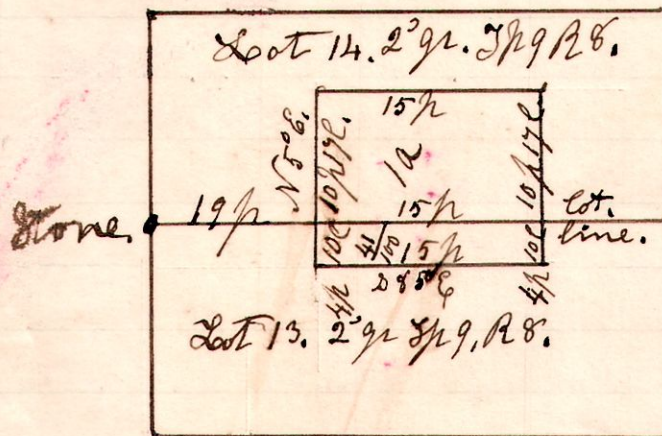 Lot 14. 2ᵈ gr. Tp 9 R 8.
N 5° E.
15 p
10 p 17 l.
1 a
10 p 17 l
Stone.
19 p
15 p
lot.
line.
10 l
41/100
15 p
10 l
4 p
S 85° E
4 p
Lot 13. 2ᵈ gr Tp 9, R 8.